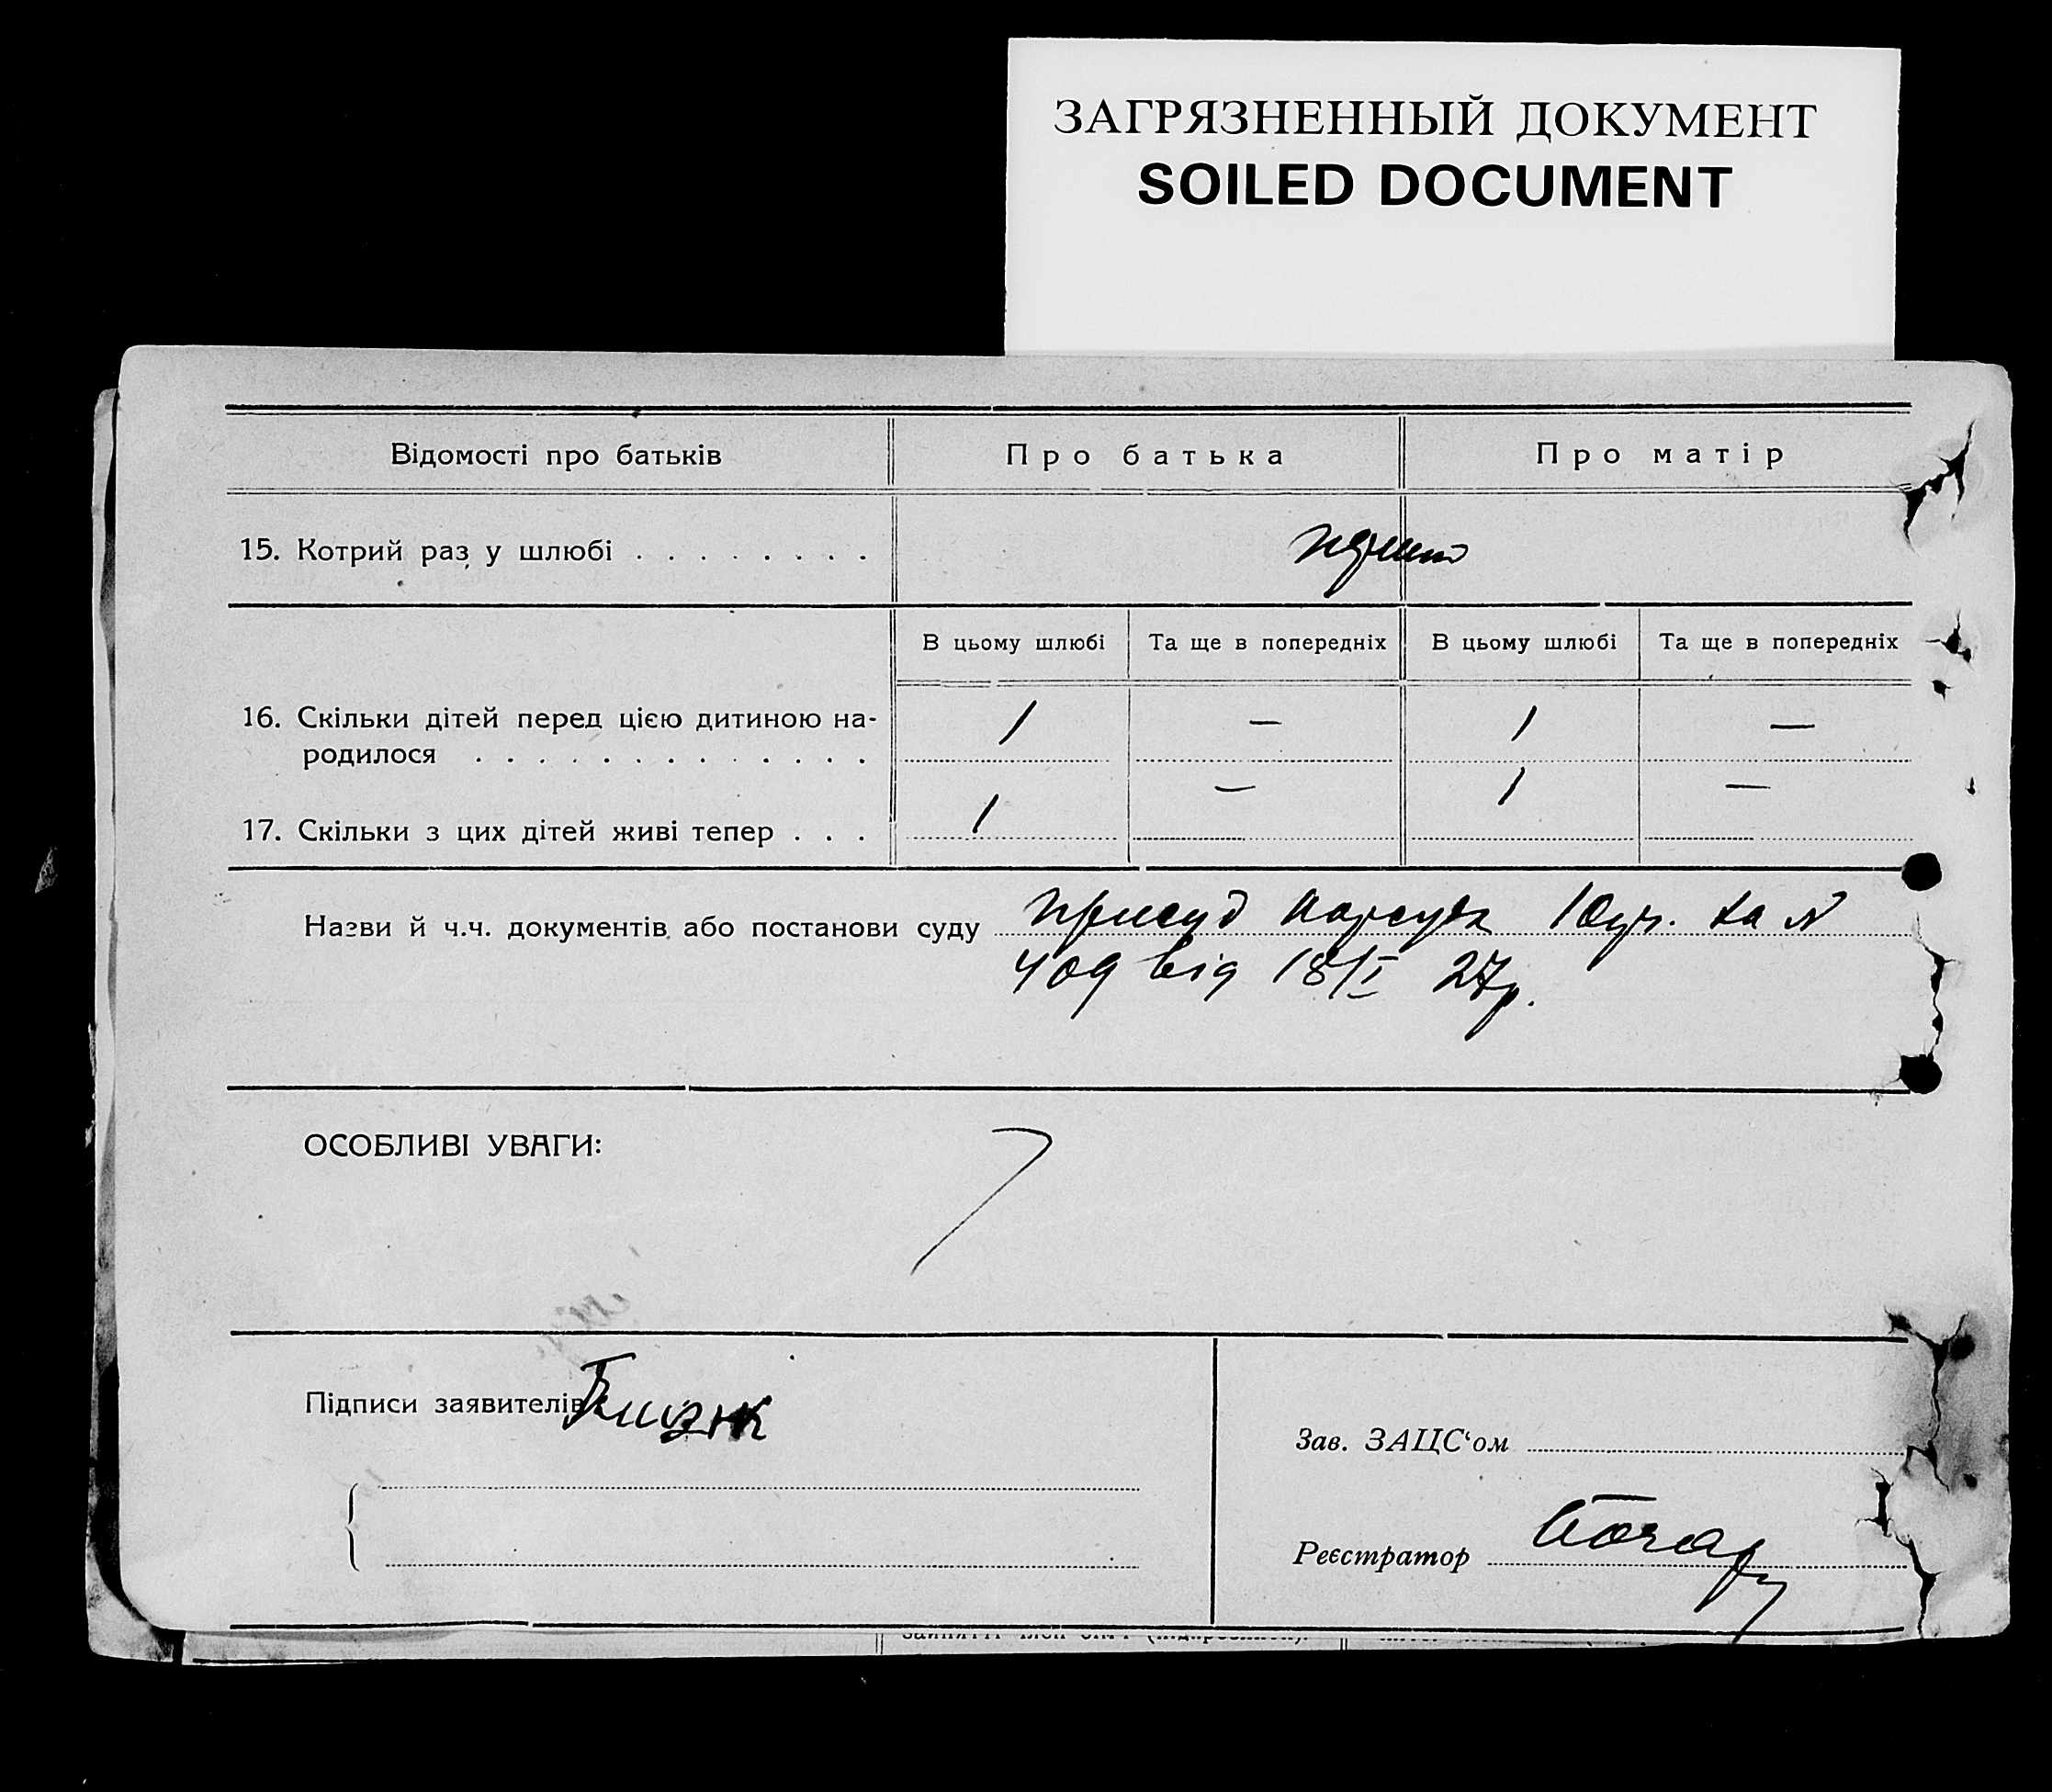 ЗАГРЯЗНЕННЫЙ ДОКУМЕНТ
SOILED DOCUMENT
Відомості про батьків Про батька Про матір
15. Котрий раз у шлюбі . . . . . . . .
В цьому шлюбі Та ще в попередніх В цьому шлюбі Та ще в попередніх
16. Скільки дітей перед цією дитиною на- 1 — 1 —
родилося . . . . . . . . . . . . .
17. Скільки з цих дітей живі тепер . . . 1 — 1 —
Назви й ч.ч. документів або постанови суду присуд Нарсуда 10 за №
409 від 18/I 27р.
ОСОБЛИВІ УВАГИ:
Підписи заявителів
Зав. ЗАЦС‘ом
Реєстратор